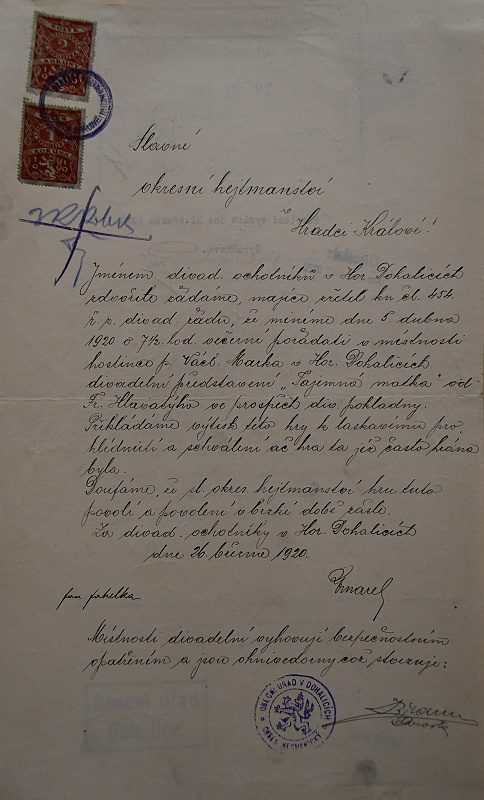 Slavné
okresní hejtmanství
v Hradci Králové!
Jménem divad. ochotníků v Hor. Dohalicích
zdvořile žádáme, majíce zřetel ku čl. 454.
ř. z. divad. řádu, že míníme dne 5. dubna
1920 o 7½ hod. večerní pořádati v místnosti
hostince p. Václ. Marka v Hor. Dohalicích
divadelní představení „Tajemná matka" od
Fr. Hlavatýho ve prospěch div. pokladny.
Přikládáme výtisk této hry k laskavému pro
hlédnutí a schválení ač hra ta již často hrána
byla.
Doufáme, že sl. okres. hejtmanství hru tuto
povolí a povolení v brzké době zašle.
Za divad. ochotníky v Hor. Dohalicích
dne 26. března 1920.
Místnosti divadelní vyhovují bezpečnostním
opatřením a jsou ohnivzdorny což stvrzuje:
OBECNÍ ÚŘAD V DOHALICÍCH
OKRES NECHANICKÝ